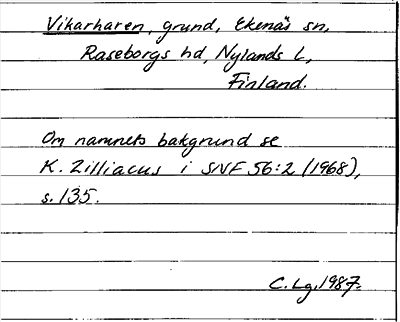 Vikarharen, grund, Ekenäs sn,
Raseborgs hd, Nylands L,
Finland.
Om namnets bakgrund se
K. Zilliacus i SNF 56:2 (1968),
s. 135.
C. Lg. 1987.